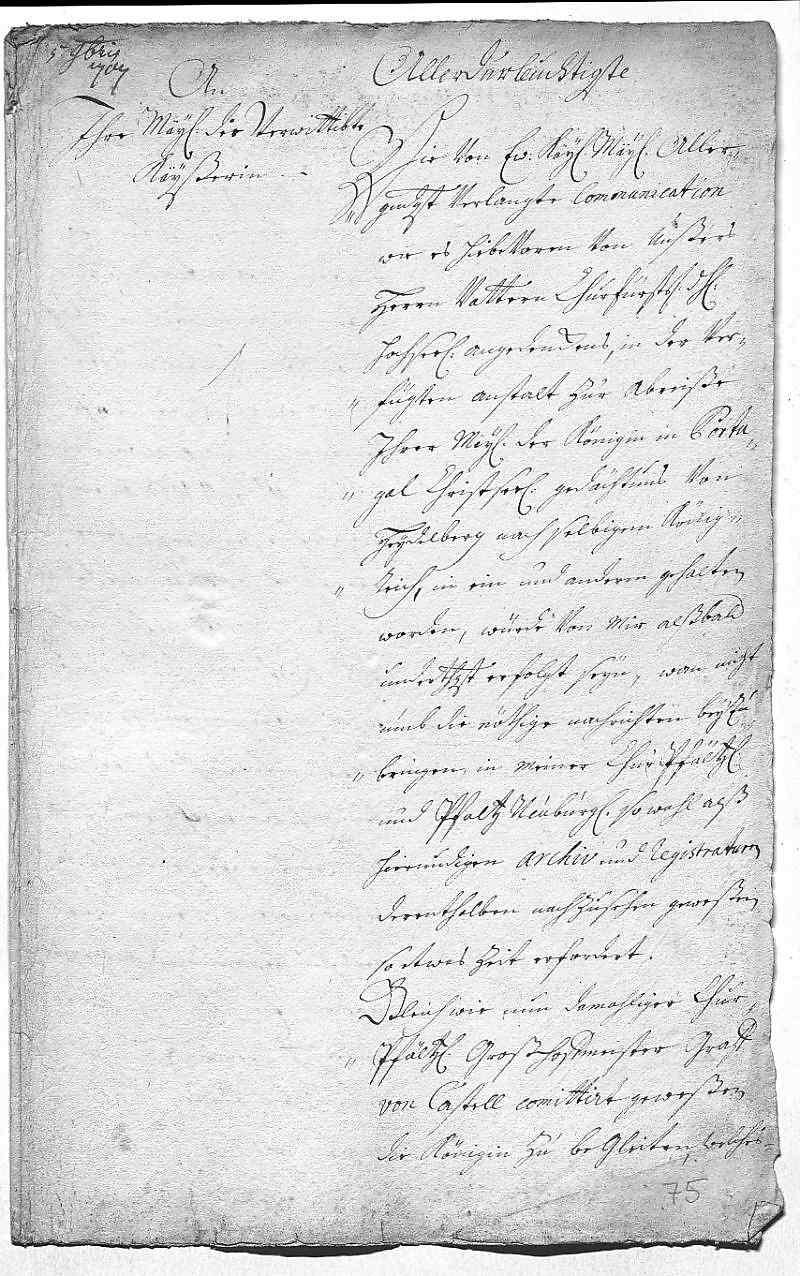 5 9bris
1707
An
Ihre Mayl. die Verwittibte
Kayßerin
Allerdurleuchtigste
Die von Ew. Kayl. Mayl. Aller-
gndgst verlangte Communication
wie es hiebevoren von Unßers
Herrn Vattern Churfürstl. Dl.
hochseel. angedenckens, in der ver-
fügten anstalt zur abreiße
Ihrer Mayl. der Königin in Portu-
gal Christseel. gedächtnus von
Heydelberg nach selbigem König-
reich, in ein und anderm gehalten
worden, würde von mir alßbald
underthgst erfolgt seyn, wan nicht
umb die nöthige nachrichten beyzu-
bringen, in meiner ChurPfältzl.
und Pfaltz Neuburgl. sowohl alß
hierundigen Archiv und registraturn
derenthalben nachzusehen geweßen
so etwas Zeit erfordert.
Gleichwie nun damahliger Chur-
Pfältzl. Großhoffmeister Graff
von Castell comittirt geweßen
die Königin zu begleiten, welches
75